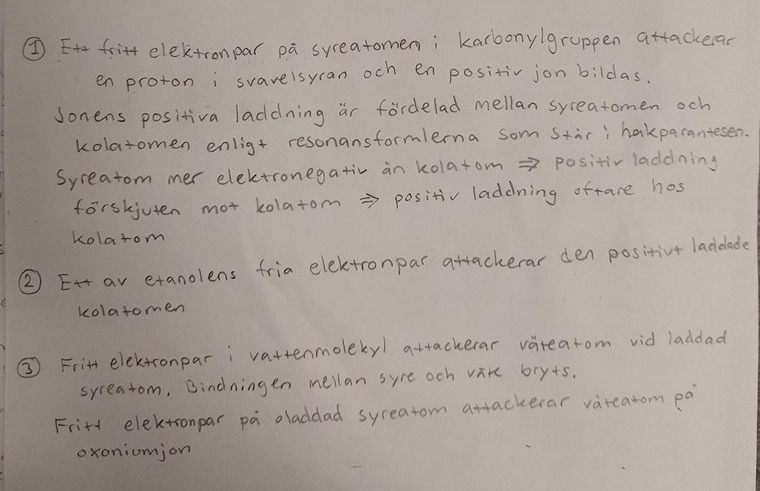 ① Ett fritt elektronpar på syreatomen i karbonylgruppen attackerar
en proton i svavelsyran och en positiv jon bildas.
Jonens positiva laddning är fördelad mellan syreatomen och
kolatomen enligt resonansformlerna som står i hakparantesen.
Syreatom mer elektronegativ än kolatom ⇒ positiv laddning
förskjuten mot kolatom ⇒ positiv laddning oftare hos
kolatom
② Ett av etanolens fria elektronpar attackerar den positivt laddade
kolatomen
③ Fritt elektronpar i vattenmolekyl attackerar väteatom vid laddad
syreatom. Bindningen mellan syre och väte bryts.
Fritt elektronpar på oladdad syreatom attackerar väteatom på
oxoniumjon